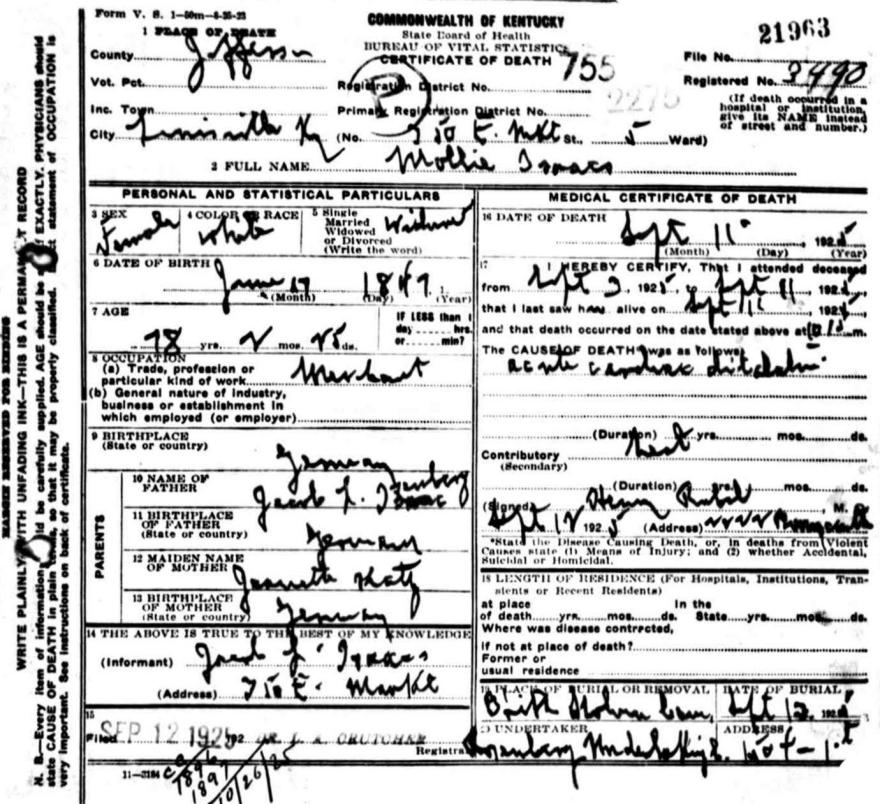 Form V. S. 1—50m—8-25-23
COMMONWEALTH OF KENTUCKY
State Board of Health
BUREAU OF VITAL STATISTICS
CERTIFICATE OF DEATH 755
21963
1 PLACE OF DEATH
County Jefferson
File No.
Registered No. 3490
Vot. Pct. Registration District No.
P
2275
(If death occurred in a hospital or institution, give its NAME instead of street and number.)
Inc. Town Primary Registration District No.
City Louisville Ky (No. 750 E. Mkt St., 5 Ward)
2 FULL NAME Mollie Isaacs
PERSONAL AND STATISTICAL PARTICULARS
3 SEX Female
4 COLOR OR RACE White
5 Single Married Widowed or Divorced (Write the word) Widow
6 DATE OF BIRTH June 17 1847
(Month) (Day) (Year)
7 AGE 78 yrs. 2 mos. 25 ds.
IF LESS than 1 day hrs. or min?
8 OCCUPATION
(a) Trade, profession or particular kind of work Merchant
(b) General nature of industry, business or establishment in which employed (or employer)
9 BIRTHPLACE (State or country) Germany
PARENTS
10 NAME OF FATHER Jacob L.
11 BIRTHPLACE OF FATHER (State or country) Germany
12 MAIDEN NAME OF MOTHER Jannette Katz
13 BIRTHPLACE OF MOTHER (State or country) Germany
14 THE ABOVE IS TRUE TO THE BEST OF MY KNOWLEDGE
(Informant) Jacob L. Isaacs
(Address) 750 E. Market
15
Filed SEP 12 1925 192 DR. L. K. CRUTCHER
Registrar
11—3184
1896
1897
10/26/25
MEDICAL CERTIFICATE OF DEATH
16 DATE OF DEATH Sept 11, 1925
(Month) (Day) (Year)
17 I HEREBY CERTIFY, That I attended deceased
from Sept 3 1925, to Sept 11, 1925,
that I last saw her alive on Sept 11, 1925,
and that death occurred on the date stated above at m.
The CAUSE OF DEATH was as follows:
acute cardiac dilatation
(Duration) yrs. mos. ds.
Contributory Heat
(Secondary)
(Duration) yrs. mos. ds.
(Signed) Henry, M. D.
Sept 12 1925 (Address)
*State the Disease Causing Death, or, in deaths from Violent Causes state (1) Means of Injury; and (2) whether Accidental, Suicidal or Homicidal.
18 LENGTH OF RESIDENCE (For Hospitals, Institutions, Transients or Recent Residents)
at place of death yrs. mos. ds. In the State yrs. mos. ds.
Where was disease contracted,
if not at place of death?
Former or usual residence
19 PLACE OF BURIAL OR REMOVAL Brith Sholom Cem,
DATE OF BURIAL Sept 13, 1925
20 UNDERTAKER
ADDRESS
MARGIN RESERVED FOR BINDING
WRITE PLAINLY WITH UNFADING INK—THIS IS A PERMANENT RECORD
N. B.—Every item of information should be carefully supplied. AGE should be stated EXACTLY. PHYSICIANS should
state CAUSE OF DEATH in plain terms, so that it may be properly classified. Exact statement of OCCUPATION is
very important. See instructions on back of certificate.